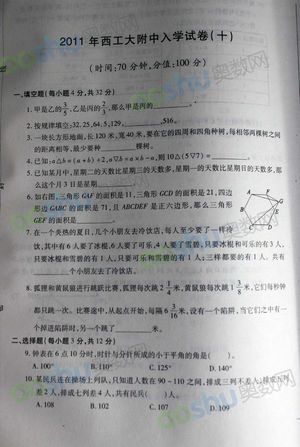 2011 年西工大附中入学试卷(十)
(时间:70 分钟,分值:100 分)
一、填空题(每小题 4 分,共 32 分)
1. 甲是乙的3/5,乙是丙的2/3,那么甲是丙的
2. 按规律填空:32,25,64.5,129, ,516。
3. 一块长方形地面,长 120 米,宽 40 米,要在它的四周和四角种树,每相邻两棵树之
间的距离相等,最少要种 棵树。
4. 已知:a△b=(a+b)×2,a▽b=a×b-a,则 10△(5▽7)=
5. 已知某月中,星期二的天数比星期三的天数多,星期一的天数比星期日的天数多,那
么这个月 3 日是星期
6. 如右图,三角形 GAF 的面积是 11,三角形 GCD 的面积是 21,四边
形边 GABC 的面积是 71,且 ABCDEF 是正六边形,那么三角形
GEF 的面积是
7. 在一个炎热的夏日,几个小朋友去冷饮店,每人至少要了一样冷
饮,其中有 6 人要了冰棍,6 人要了可乐,4 人要了雪碧,只要冰棍和可乐的有 3 人,
只要冰棍和雪碧的有 1 人,只要可乐和雪碧的有 1 人;三样都要的有 1 人,共有
个小朋友去了冷饮店。
8. 狐狸和黄鼠狼进行跳跃比赛,狐狸每次跳 米,黄鼠狼每次跳 米,它们每秒钟
都只跳一次。比赛途中,从起点开始,每隔 6 3/16 米,设有一个陷阱,当它们之中有一
个掉进陷阱时,另一个跳了
二、选择题(每小题 3 分,共 12 分)
9. 钟表在 6 点 10 分时,时针与分针所成的小于平角的角是( )。
A. 100° B. 110° C. 125° D. 140°
10. 某民兵连在操场上列队,只知道人数在 90~110 之间,排成三列不差人,排成五列
差 2 人,排成七列差 4 人,共有民兵( )人。
A. 108 B. 102 C. 107 D. 109
aoshu奥数网